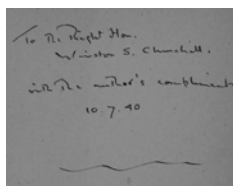 To The Right Hon.
Winston S. Churchill.
with the author's compliments
10.7.40